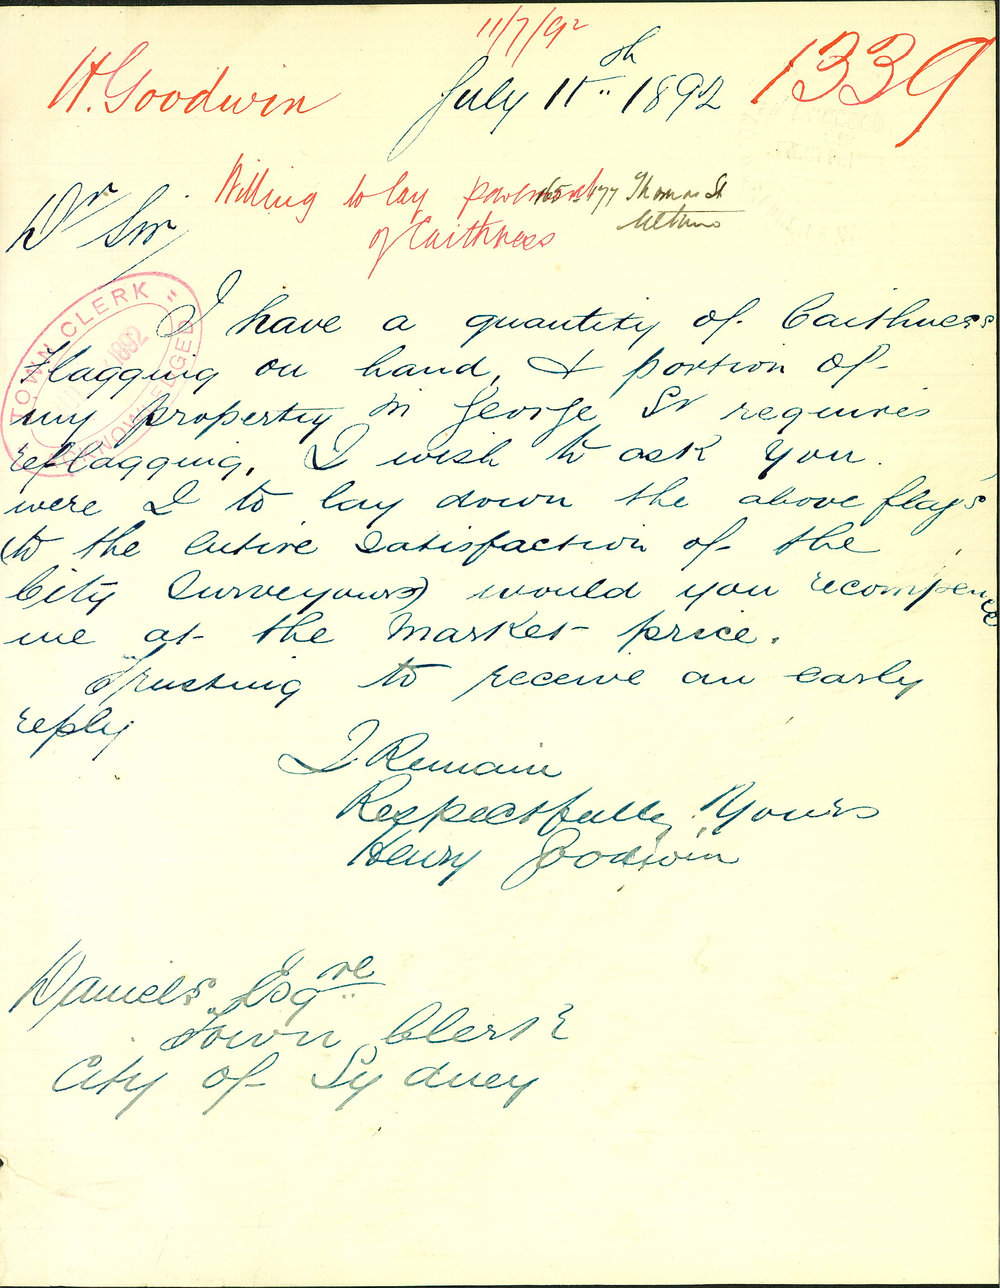 11/7/92
H. Goodwin
July 11th 1892
1339
Willing to lay pavement
of Caithness
165 to 177 Thomas St
Ultimo
Dr Sir
TOWN CLERK
1892
ACKNOWLEDGED
I have a quantity of Caithness
Flagging on hand, & portion of
my property in George St requires
reflagging. I wish to ask you
were I to lay down the above flags
(to the entire satisfaction of the
City Surveyours) would you recompence
me at the market price.
Trusting to receive an early
reply
I Remain
Respectfully Yours
Henry Goodwin
Daniels Esqre
Town Clerk
City of Sydney